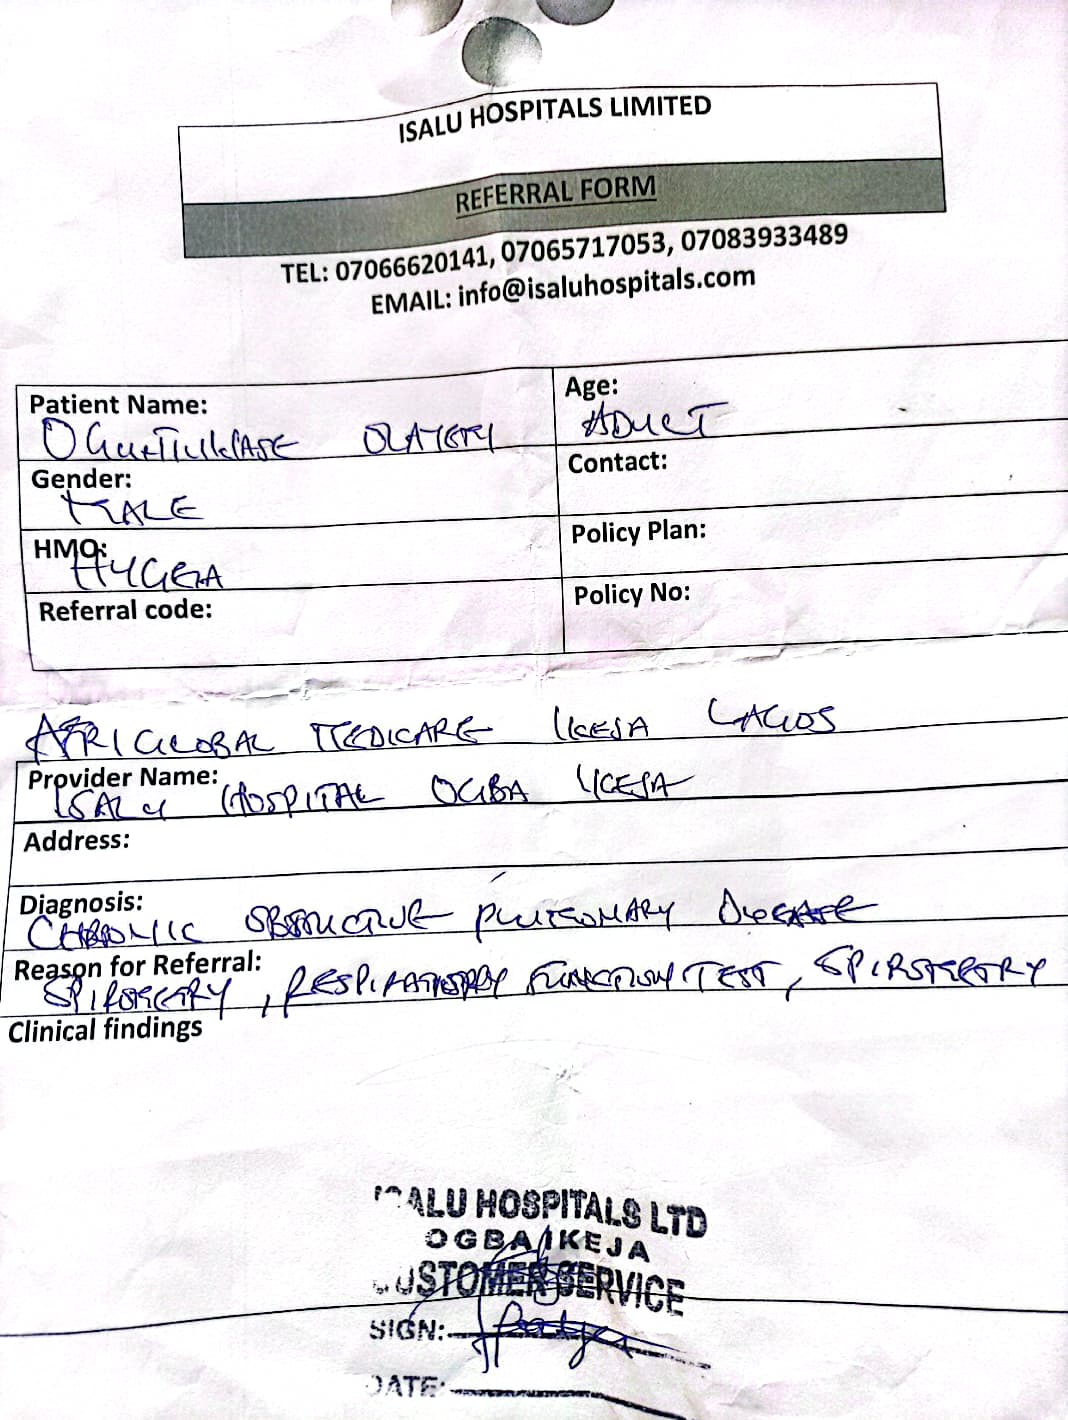 ISALU HOSPITALS LIMITED
REFERRAL FORM
TEL: 07066620141, 07065717053, 07083933489
EMAIL: info@isaluhospitals.com
Patient Name:
Age:
ADULT
Gender:
MALE
Contact:
HMO:
HYGEIA
Policy Plan:
Referral code:
Policy No:
AFRIGLOBAL MEDICARE IKEJA LAGOS
Provider Name:
ISALU HOSPITAL OGBA IKEJA
Address:
Diagnosis:
CHRONIC OBSTRUCTIVE PULMONARY DISEASE
Reason for Referral:
SPIROMETRY, RESPIRATORY FUNCTION TEST, SPIROMETRY
Clinical findings
ISALU HOSPITALS LTD
OGBA/IKEJA
CUSTOMER SERVICE
SIGN:
DATE: